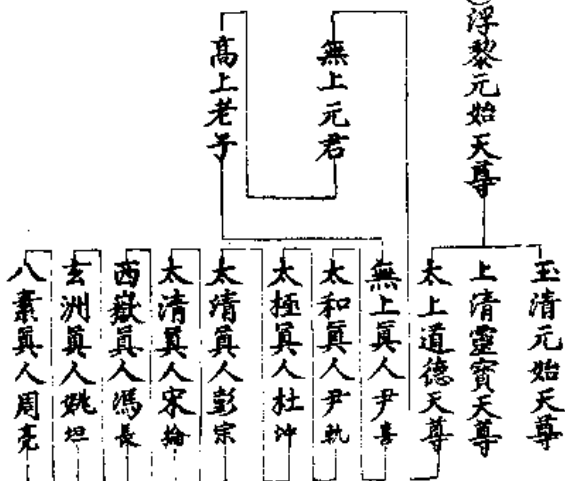 浮黎元始天尊
無上元君
高上老子
玉清元始天尊
上清靈寶天尊
太上道德天尊
無上眞人尹喜
太和眞人尹軌
太極眞人杜冲
太清眞人彭宗
太清眞人宋倫
西嶽眞人馮長
玄洲眞人姚坦
八素眞人周亮